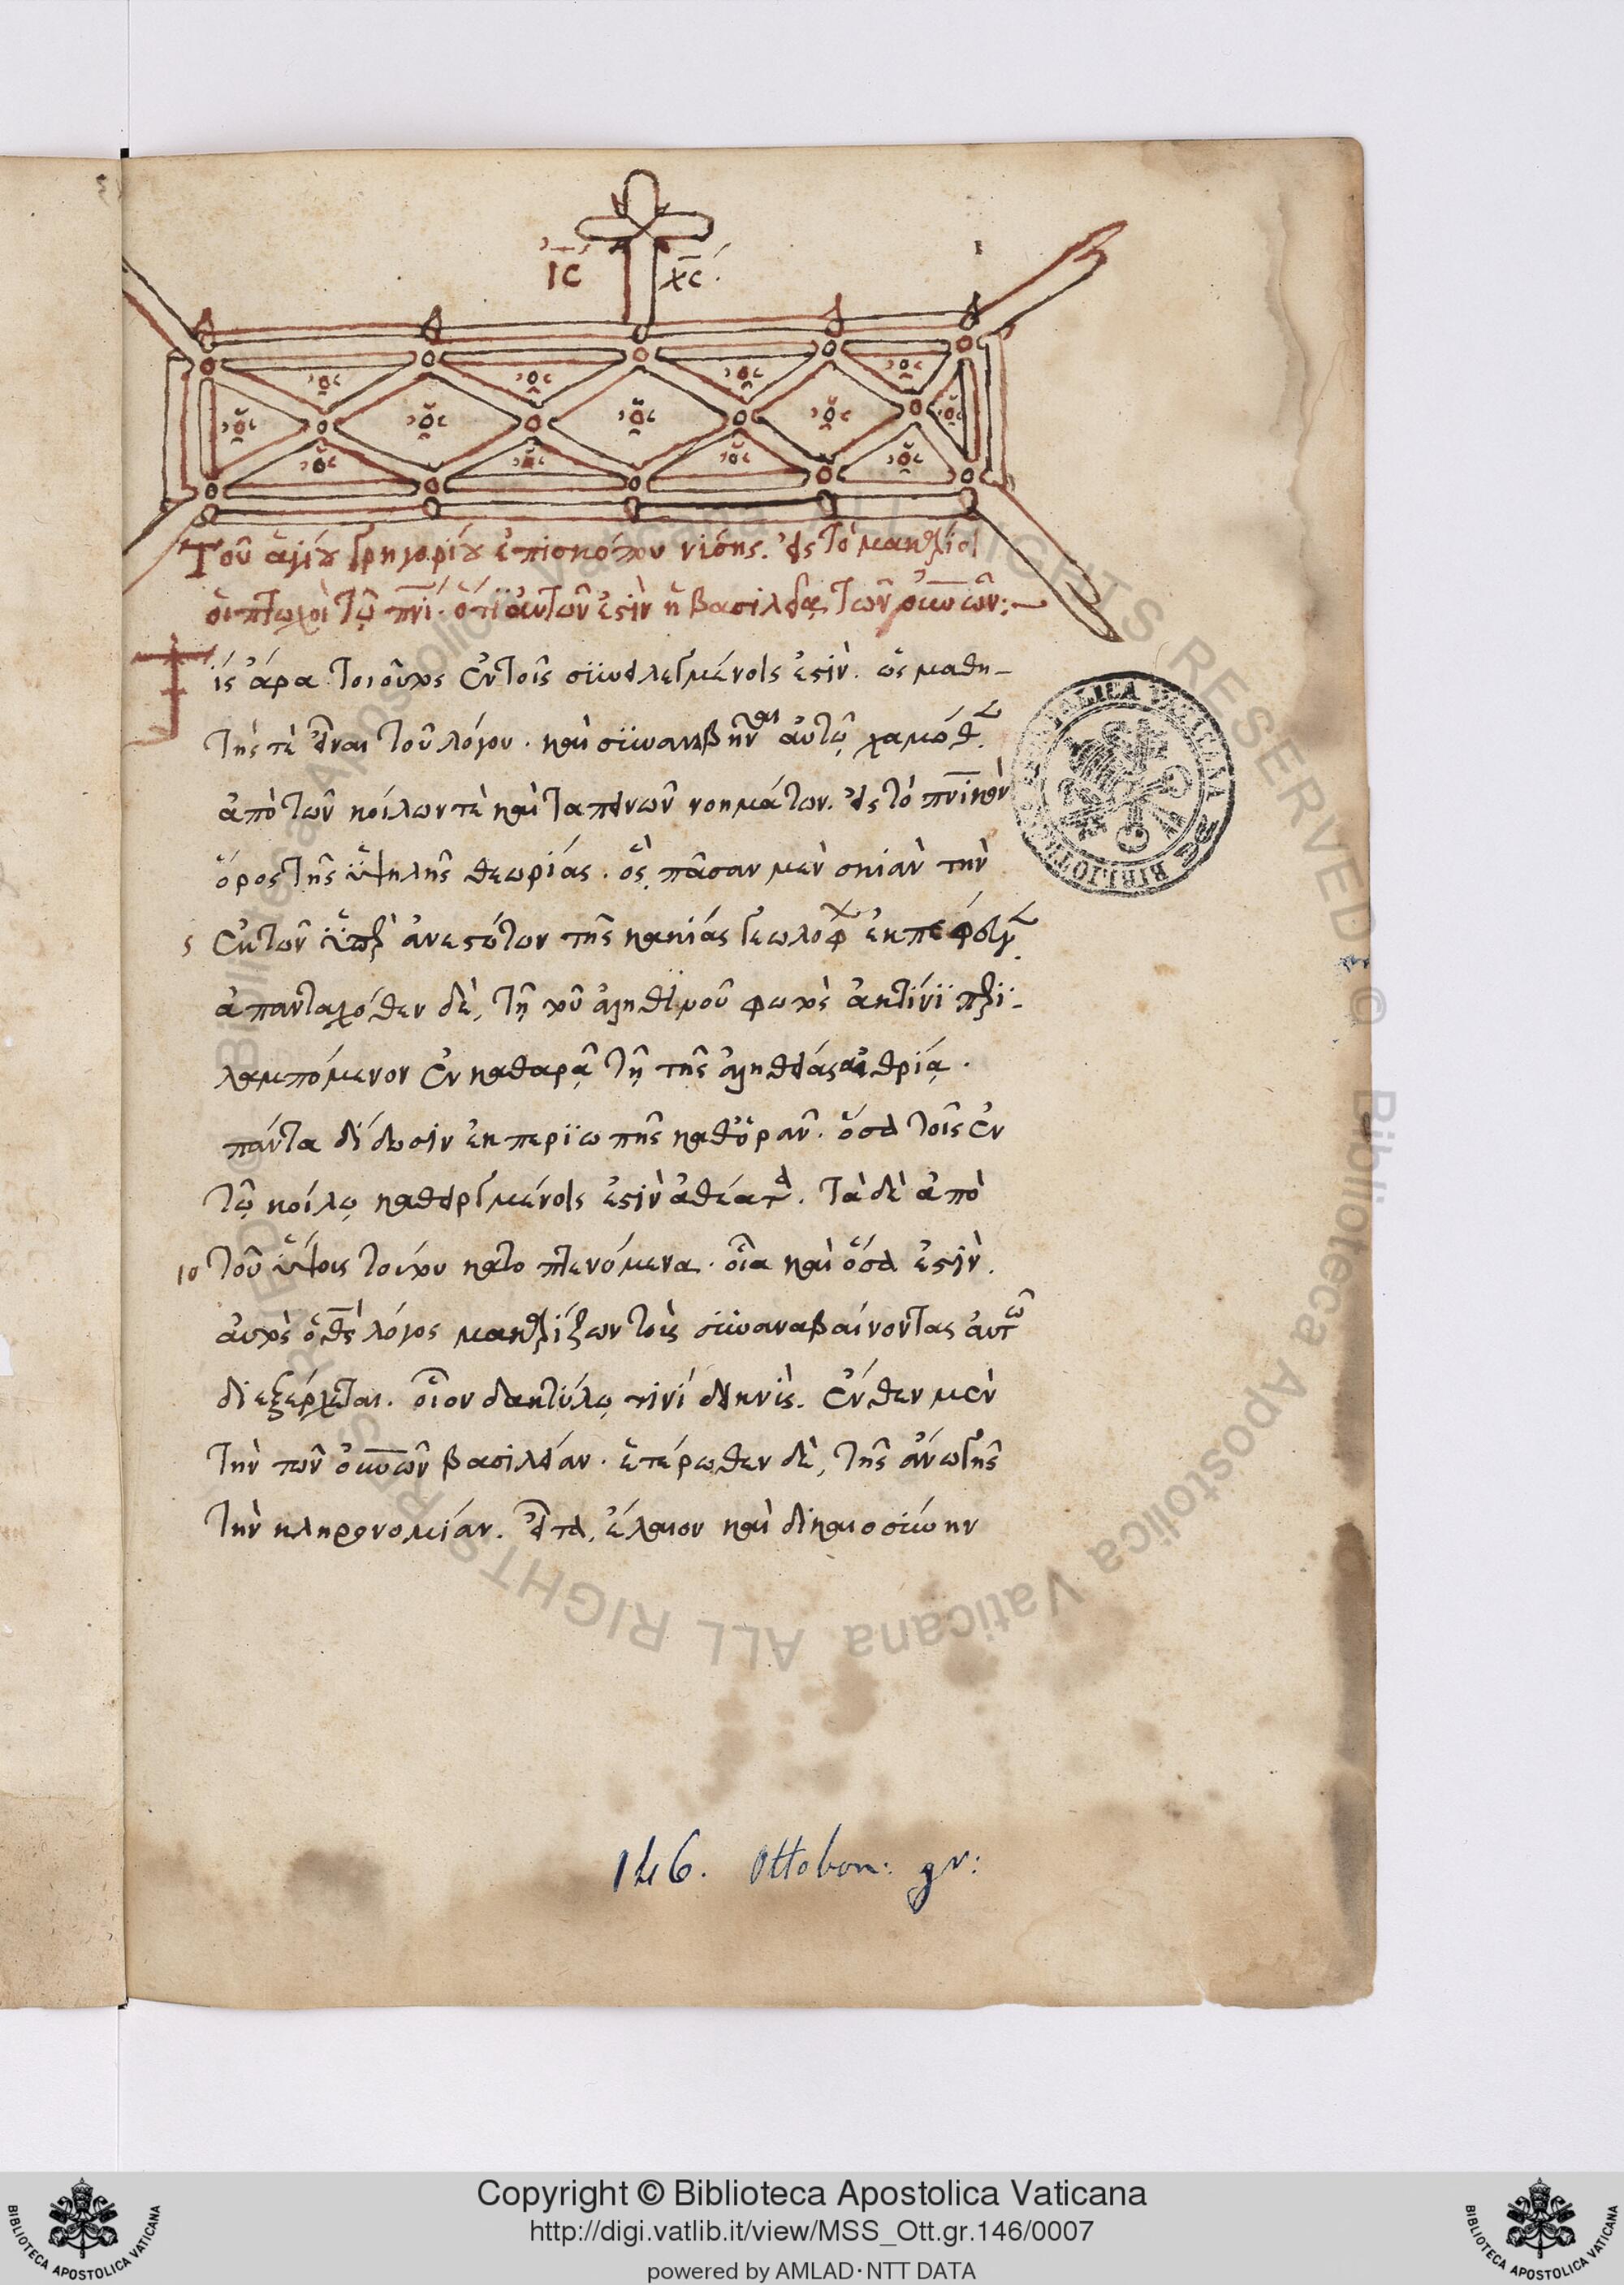 ΙC ΧC
Τοῦ ἁγίου Γρηγορίου ἐπισκόπου νίσης. εἰς τὸ μακάριοι
οἱ πτωχοὶ τῶ πνι. ὅτι αὐτῶν ἐστὶν ἡ βασιλεία τῶν οὐνῶν:
Τίς ἄρα τοιοῦτος ἐν τοῖς συνειλεγμένοις ἐστὶν. ὡς μαθη-
τής τὲ εἶναι τοῦ λόγου. καὶ συναναβῆναι αὐτῶ χαμόθεν
ἀπὸ τῶν κοίλων τὲ καὶ ταπεινῶν νοημάτων. εἰς τὸ πνικὸν
ὄρος τῆς ὑψηλῆς θεωρίας. ὃς πᾶσαν μὲν σκιὰν τὴν
5 ἐκ τῶν ὑπερανεστώτων τῆς κακίας γεωλόφων ἐκπέφευγεν
ἁπανταχόθεν δὲ, τῆ τοῦ ἀληθινοῦ φωτὸς ἀκτῖνι περι-
λαμπόμενον ἐν καθαρᾷ τῆ τῆς ἀληθείας αἰθρίᾳ.
πάντα δίδωσιν ἐκ περιωπῆς καθορᾶν. ὅσα τοῖς ἐν
τῶ κοίλω καθειργμένοις ἐστὶν ἀθέατα. Τὰ δὲ ἀπὸ
10 τοῦ ὕψους τούτου κατοπτευόμενα. οἷα καὶ ὅσα ἐστὶν.
αὐτὸς ὁ θς λόγος μακαρίζων τοὺς συναναβαίνοντας αὐτῶ
διεξέρχεται. οἷον δακτύλω τινὶ δεικνὺς. ἔνθεν μὲν
τὴν τῶν οὐνῶν βασιλείαν. ἑτέρωθεν δὲ, τῆς ἄνω γῆς
τὴν κληρονομίαν. εἶτα, ἔλεον καὶ δικαιοσύνην
146. Ottobon: gr:
Copyright © Biblioteca Apostolica Vaticana
http://digi.vatlib.it/view/MSS_Ott.gr.146/0007
powered by AMLAD·NTT DATA
BIBLIOTECA APOSTOLICA VATICANA
BIBLIOTECA APOSTOLICA VATICANA